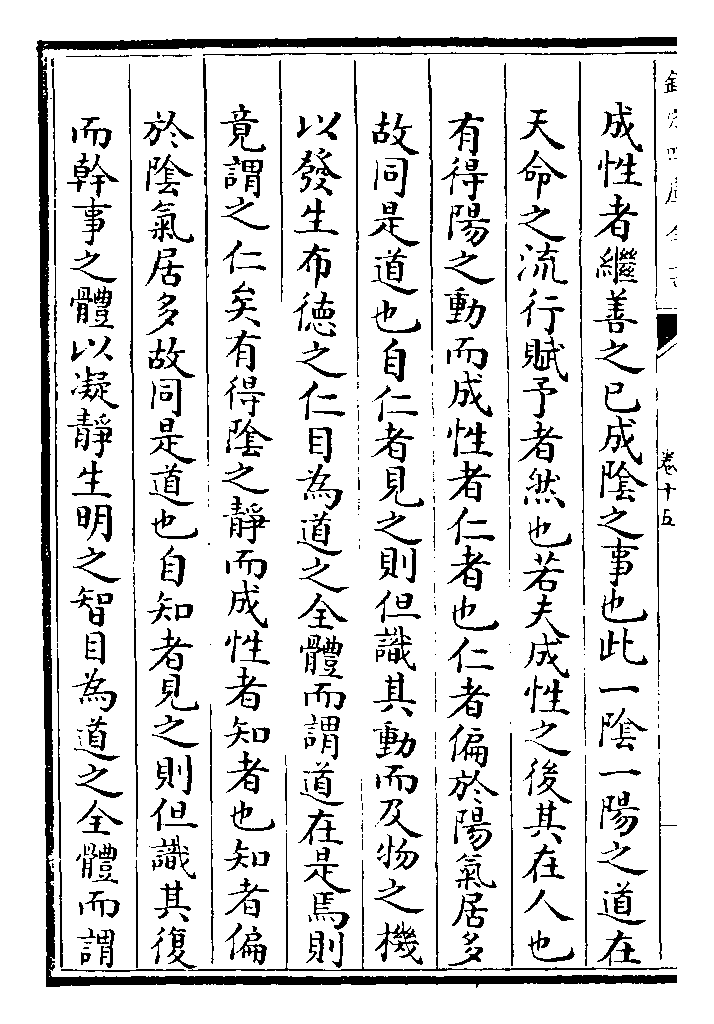 欽定四庫全書
卷十五
成性者繼善之已成陰之事也此一陰一陽之道在
天命之流行賦予者然也若夫成性之後其在人也
有得陽之動而成性者仁者也仁者偏於陽氣居多
故同是道也自仁者見之則但識其動而及物之機
以發生布德之仁目為道之全體而謂道在是焉則
竟謂之仁矣有得陰之靜而成性者知者也知者偏
於陰氣居多故同是道也自知者見之則但識其復
而幹事之體以凝靜生明之智目為道之全體而謂